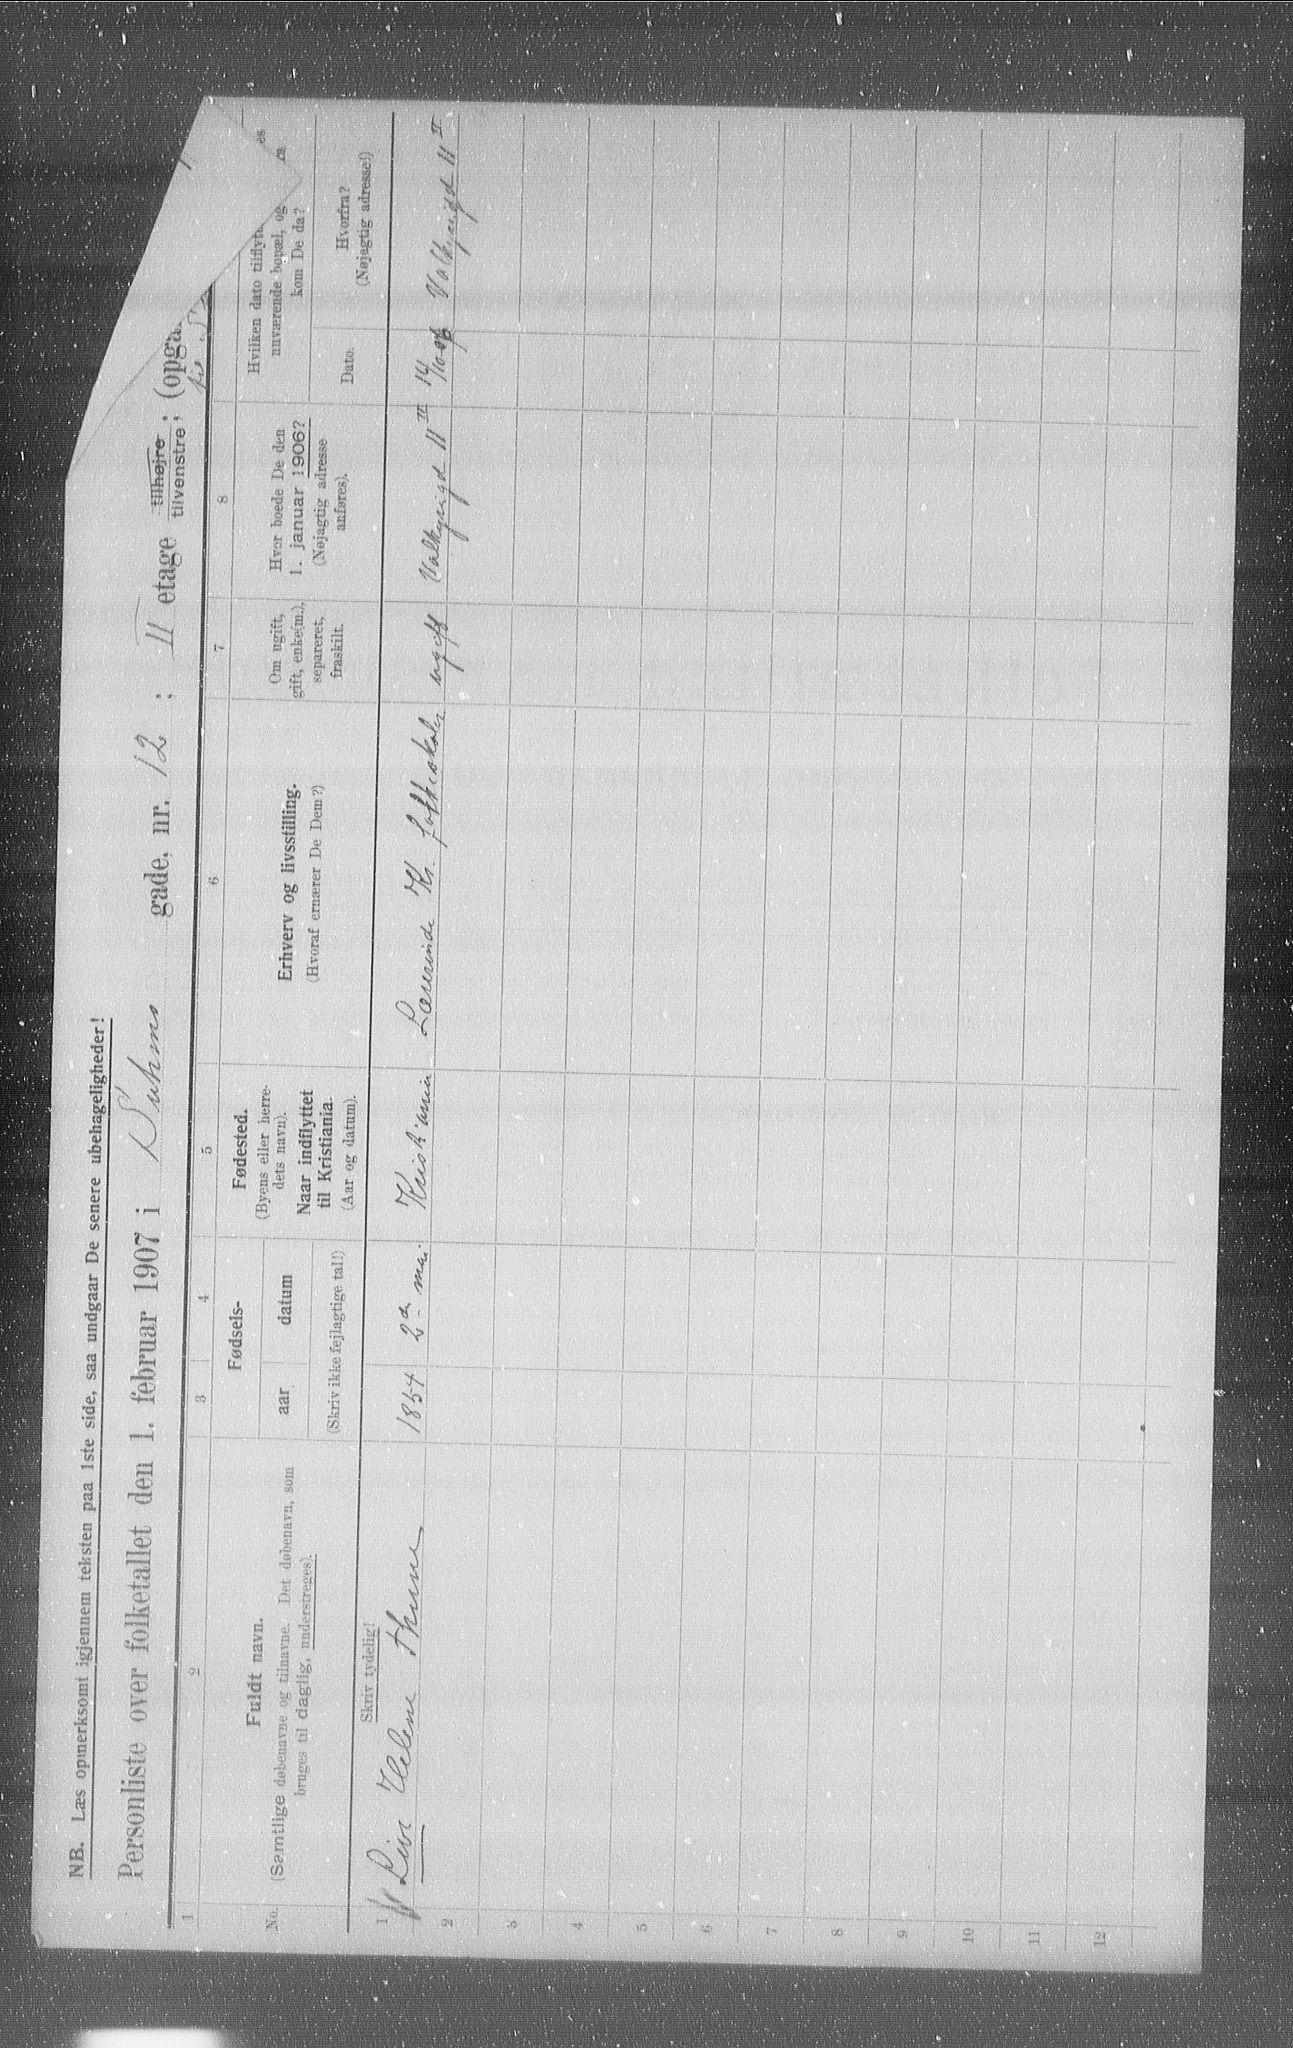 NB. Læs opmerksomt igjennem teksten paa 1ste side, saa undgaar De senere ubehageligheder!
Personliste over folketallet den 1. februar 1907 i Suhms gade, nr. 12 ; II etage tilhøjre tilvenstre ; (opga
1 2 3 4 5 6 7 8
No.
Fuldt navn.
(Samtlige døbenavne og tilnavne. Det døbenavn, som
bruges til daglig, understreges).
Skriv tydelig!
Fødsels-
aar datum
(Skriv ikke fejlagtige tal!)
Fødested.
(Byens eller herre-
dets navn).
Naar indflyttet
til Kristiania.
(Aar og datum).
Erhverv og livsstilling.
(Hvoraf ernærer De Dem?)
Om ugift,
gift, enke(m.),
separeret,
fraskilt.
Hvor boede De den
1. januar 1906?
(Nøjagtig adresse
anføres).
Hvilken dato tilflytt es
nuværende bopæl, og ra
kom De da?
Dato.
Hvorfra?
(Nøjagtig adresse!)
1 Live Helene Thune 1854 2den mai Kristiania Lærerinde Kr. folkeskoler ugift Valkyrigd 11 II 14/10 06 Valkyrigd 11 II
2
3
4
5
6
7
8
9
10
11
12